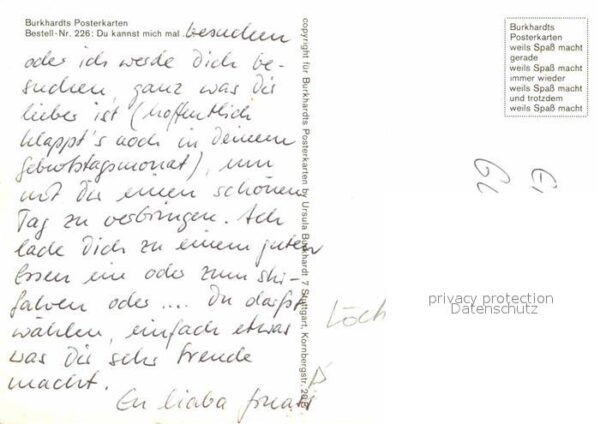 Burkhardts Posterkarten
Bestell-Nr. 226: Du kannst mich mal besuchen
oder ich werde Dich be-
suchen, ganz was Dir
lieber ist (hoffentlich
klappt's noch in Deinem
Geburtstagsmonat), um
mit Dir einen schönen
Tag zu verbringen. Ich
lade Dich zu einem guten
Essen ein oder zum Ski-
fahren oder .... Du darfst
wählen, einfach etwas
was Dir sehr Freude
macht.
En liaba
copyright für Burkhardts Posterkarten by Ursula Burkhardt 7 Stuttgart, Kornbergstr. 29
Burkhardts
Posterkarten
weils Spaß macht
gerade
weils Spaß macht
immer wieder
weils Spaß macht
und trotzdem
weils Spaß macht
privacy protection
Datenschutz